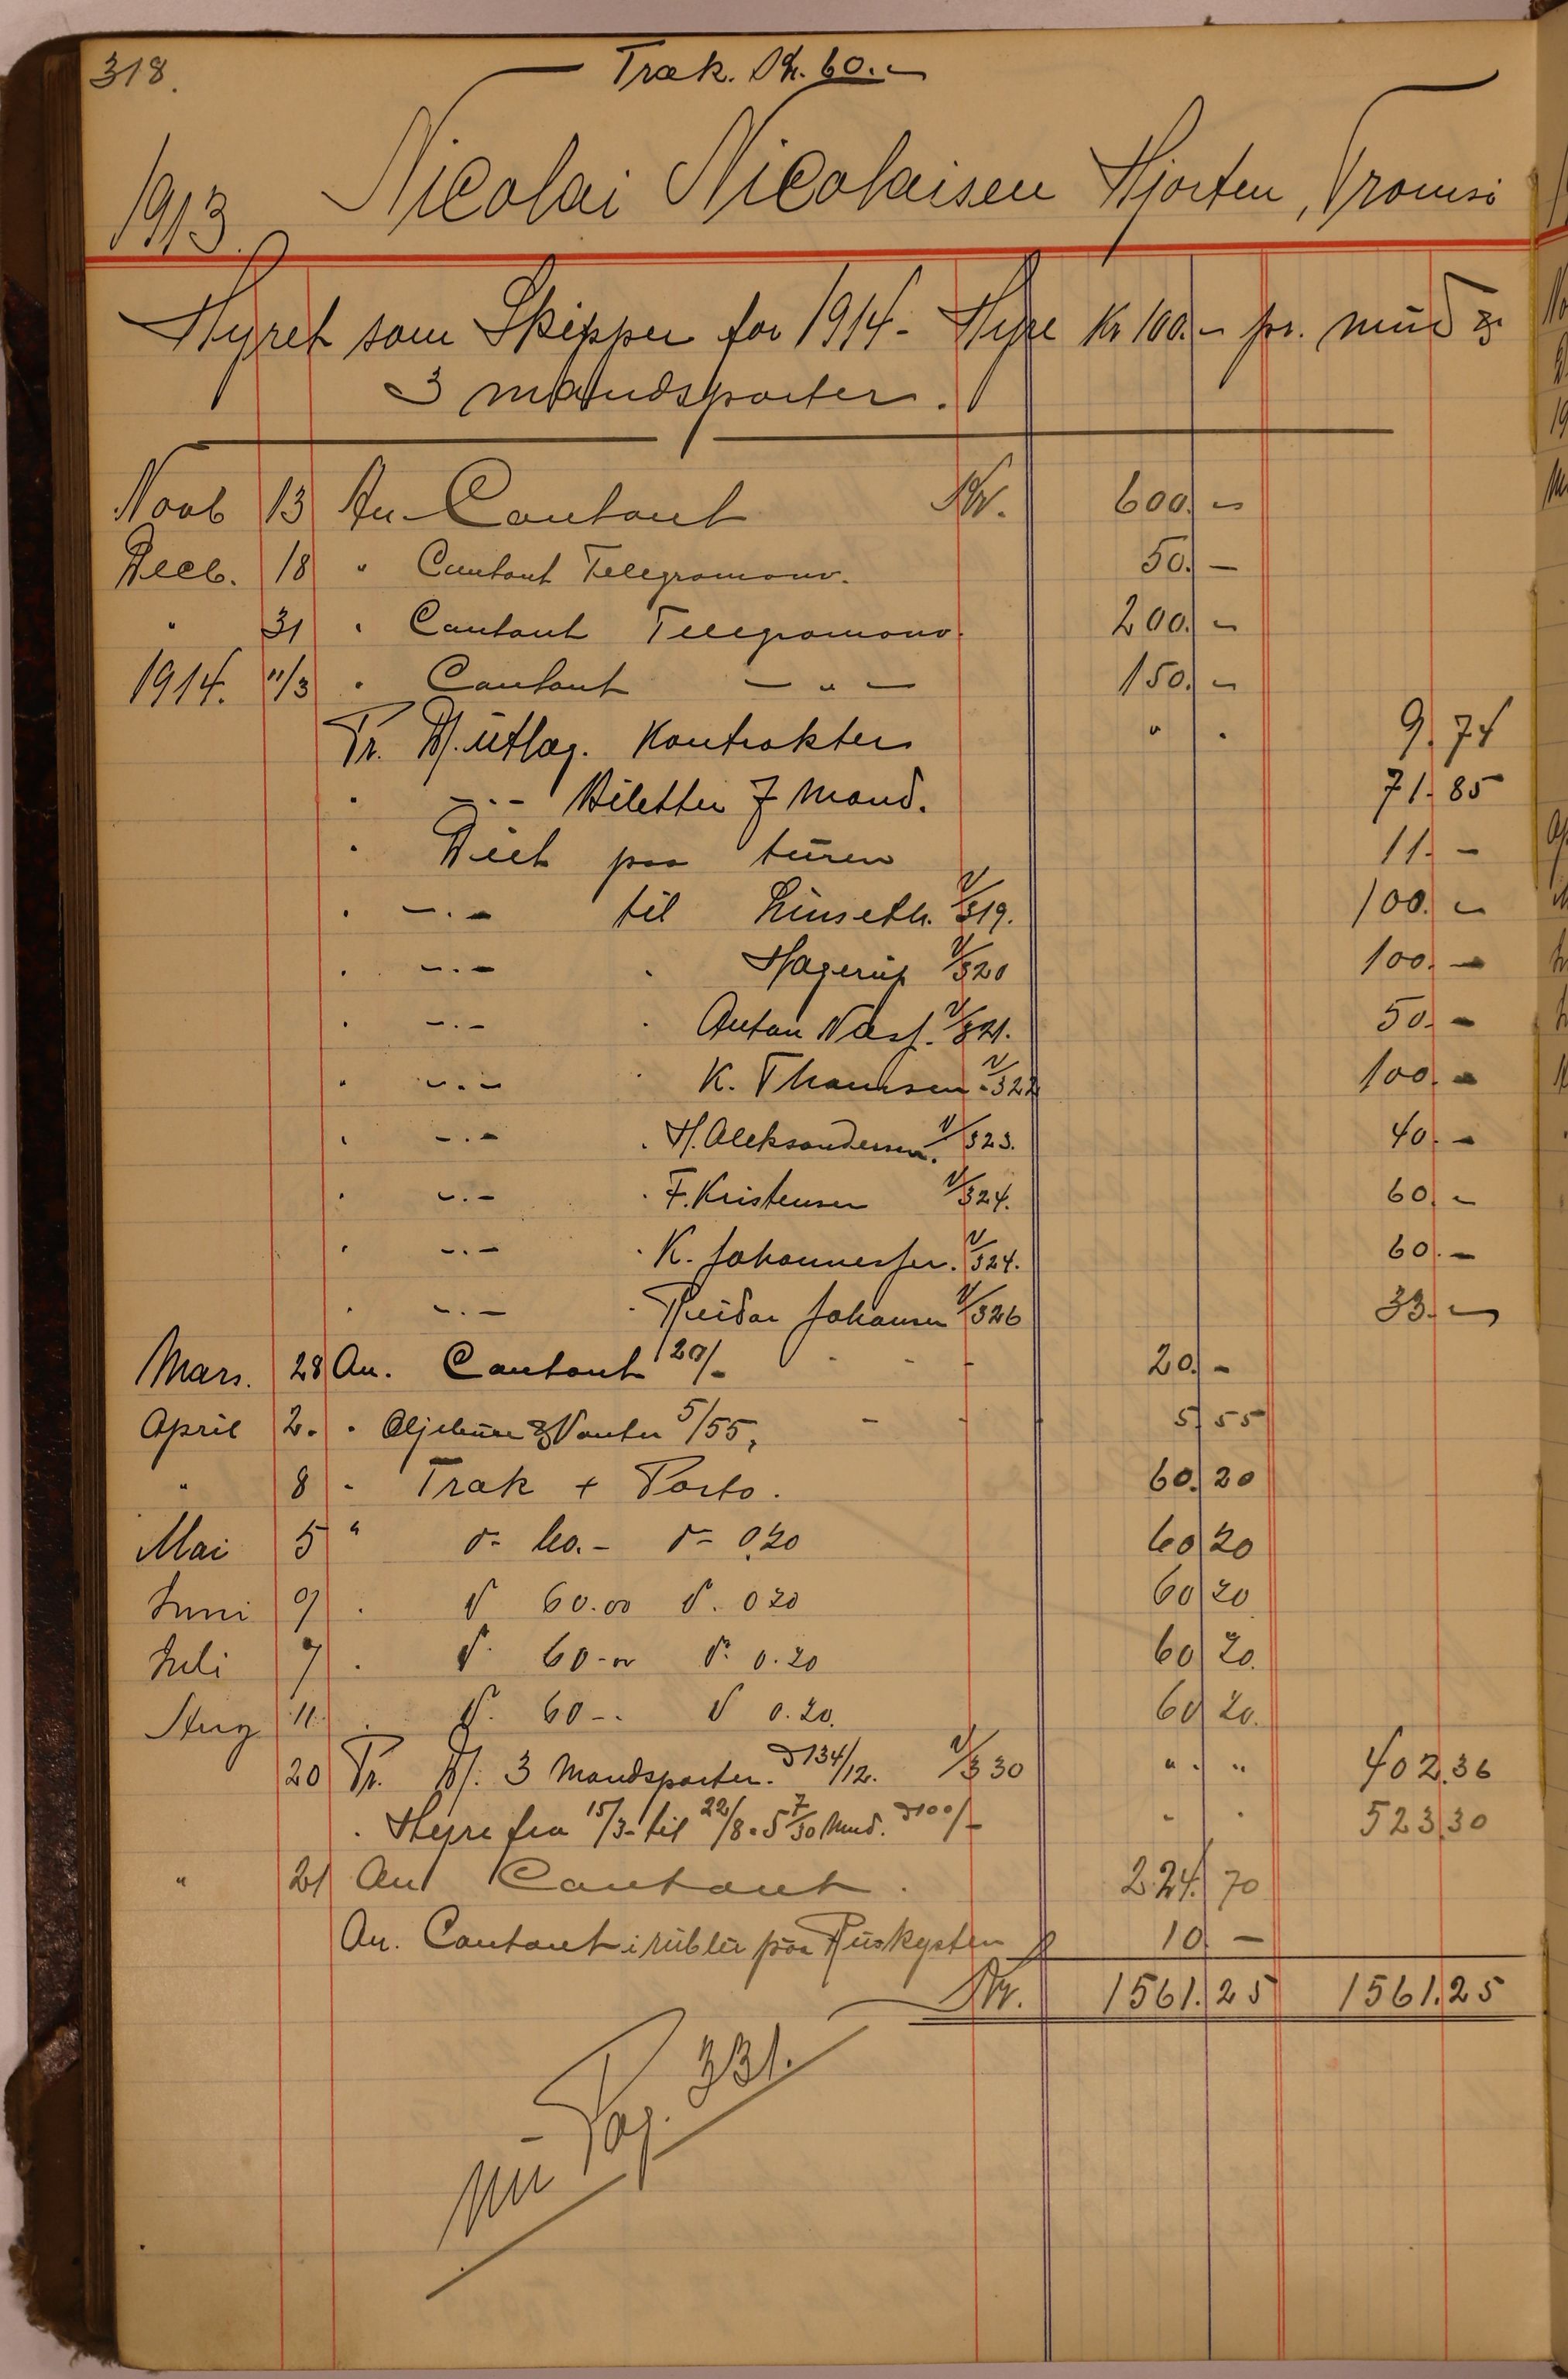 318.
Træk. Kr. 60.-
1913. Nicolai Nicolaisen Hjorten, Tromsö
Hyret som Skipper for 1914 - Hyre Kr 100.- pr. mnd &
3 mandsparter.
Novb 13 An Contant Kr. 600.-
Decb. 18 " Contant Telegramanv. 50.-
" 31 " Contant Telegramanv. 200.-
1914. 11/3 " Contant - " - 150.-
Pr. M. utlæg. Kontrakter " . 9.74
" -.- Billetter 7 Mand. 71.85
" Diæt paa turen 11.-
" -.- til Linseth. V/319. 100.-
" -.- " Hagerup V/320 100.-
" -.- " Anton Næss. V/321. 50.-
" -.- " K. Thomsen V/322 100.-
" -.- " H. Aleksandersen. V/323. 40.-
" -.- " F. Kristensen V/324. 60.-
" -.- " K. Johannessen. V/324. 60.-
" -.- " Reidar Johansen V/326 33.-
Mars. 28 An. Contant 20/- 20.-
April 2. " Oljebuxe & Vanter 5/55, 5.55
" 8 " Træk + Porto. 60.20
Mai 5 " d= 60.- d= 0.20 60 20
Juni 9 . d 60.00 d. 0 20 60 20
Juli 7 . d. 60-00 d. 0.20 60 20.
Aug 11. . d. 60-. d 0.20. 60 20.
20 Pr. M. 3 Mandsparter. à 134/12. V/330 " . " 402.36
. Hyre fra 15/3 - til 22/8 = 5 7/30 Mnd. à 100/- " . 523.30
" 21 An Contant. 224.70
An. Contant i rubler paa Ruskysten 10 -
Kr. 1561.25 1561.25
Pag. 331.